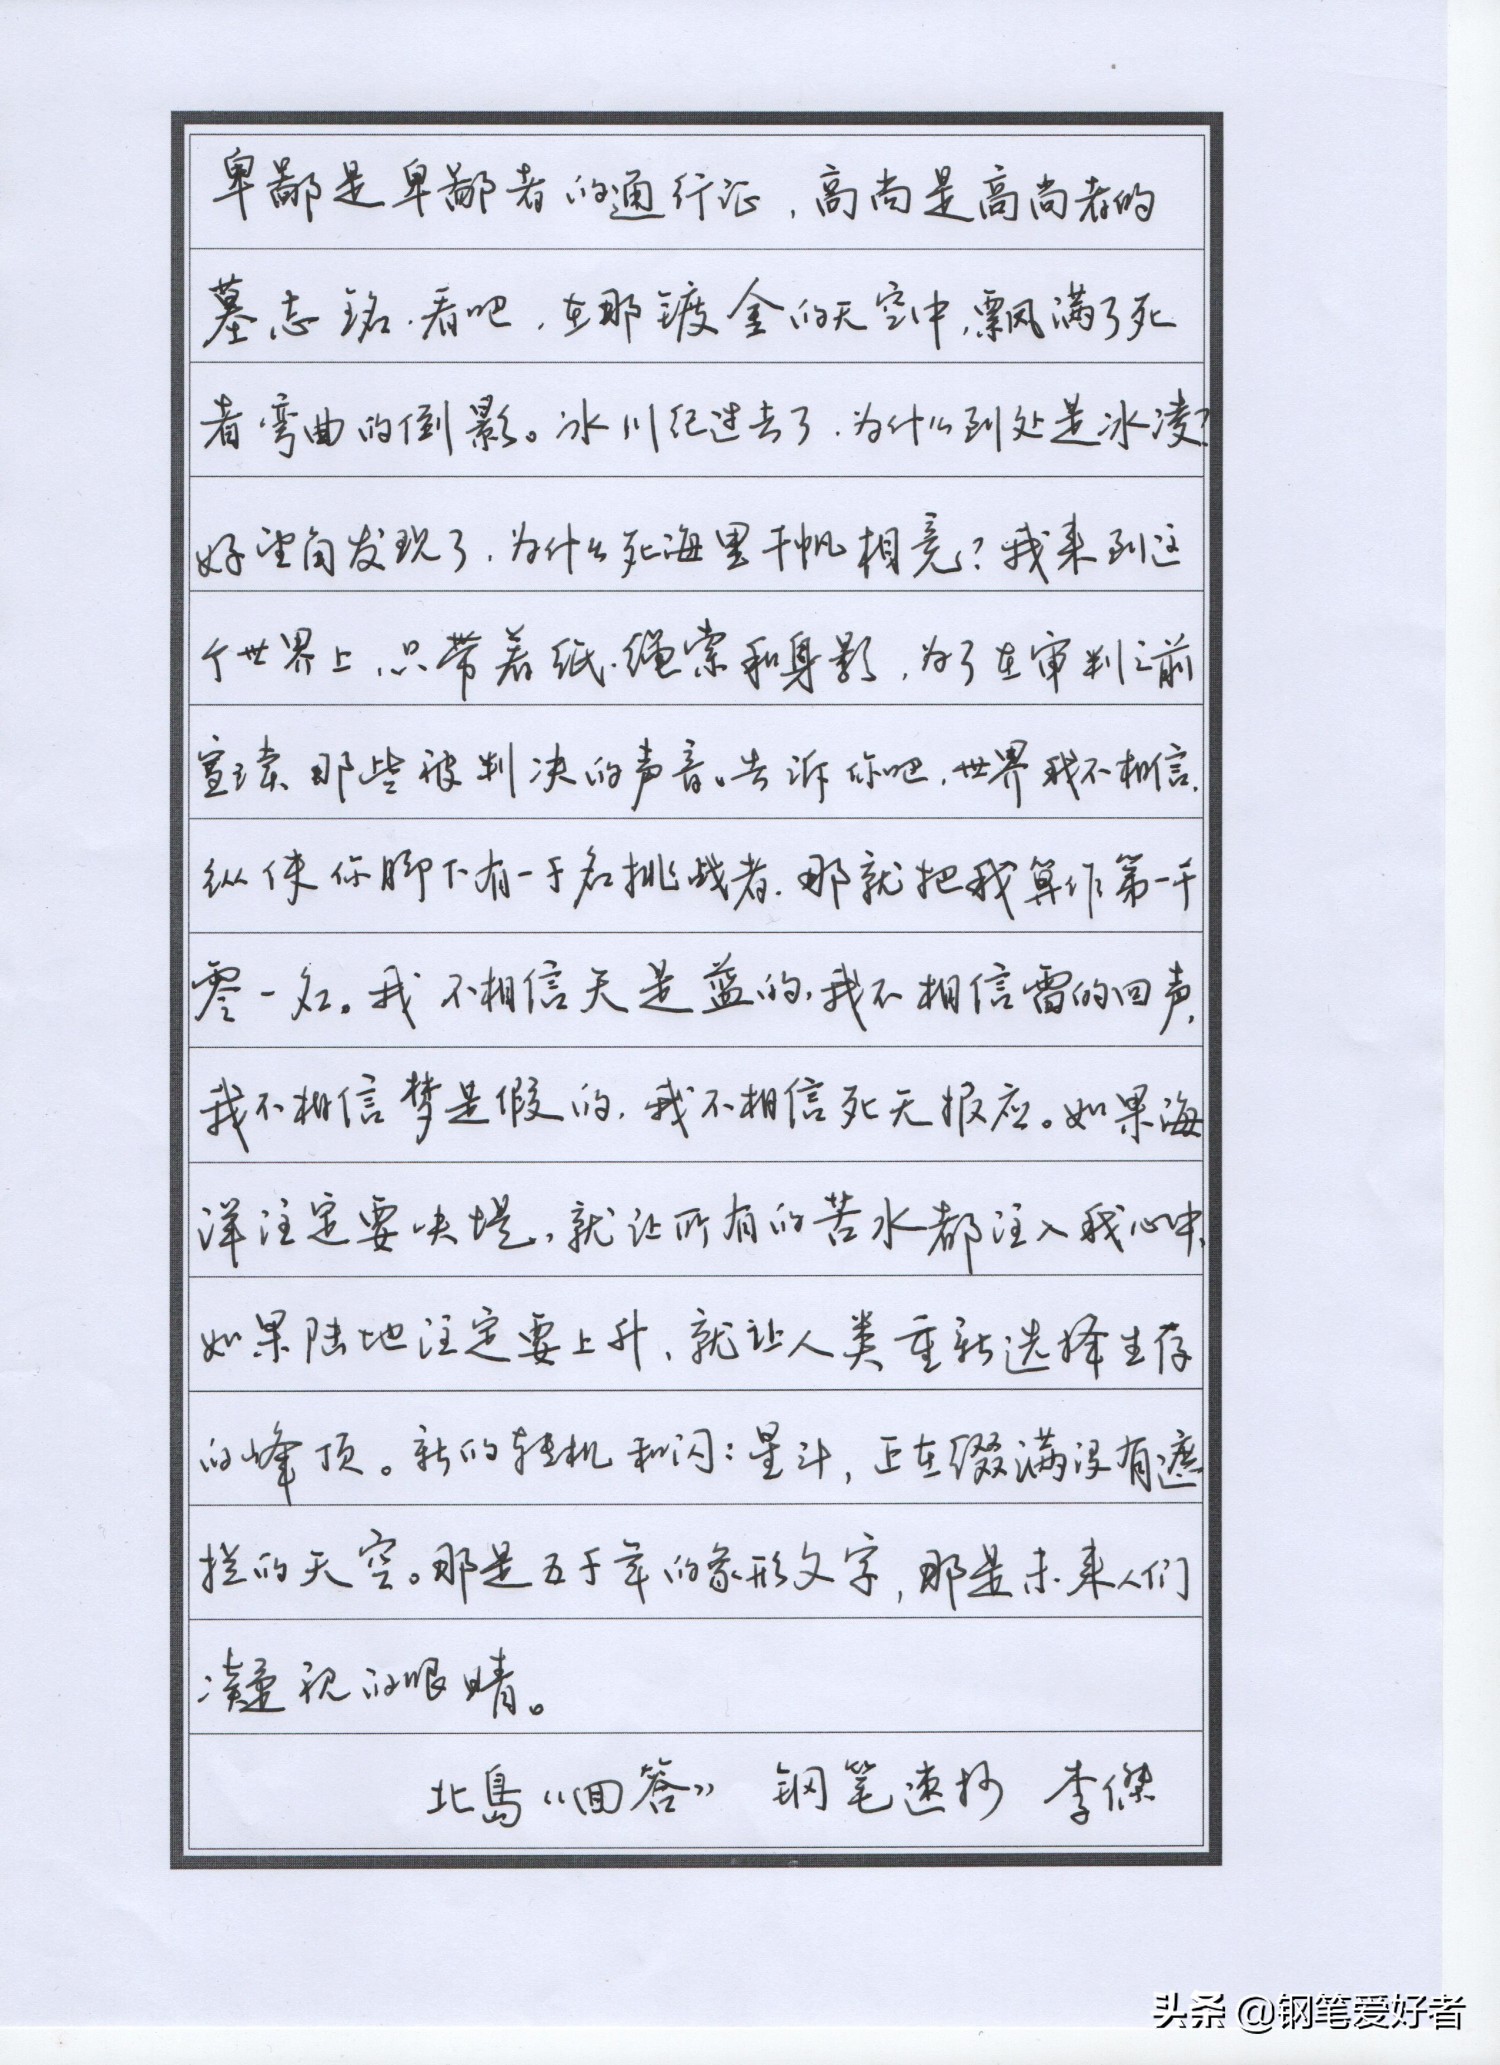 卑鄙是卑鄙者的通行证，高尚是高尚者的
墓志铭.看吧，在那镀金的天空中，飘满了死
者弯曲的倒影。冰川纪过去了.为什么到处是冰凌？
好望角发现了.为什么死海里千帆相竞？我来到这
个世界上，只带着纸.绳索和身影，为了在审判之前
宣读、那些被判决的声音。告诉你吧，世界我不相信.
纵使你脚下有一千名挑战者.那就把我算作第一千
零一名。我不相信天是蓝的，我不相信雷的回声，
我不相信梦是假的，我不相信死无报应。如果海
洋注定要决堤，就让所有的苦水都注入我心中、
如果陆地注定要上升、就让人类重新选择生存
的峰顶。新的转机和闪:星斗，正在缀满没有遮
拦的天空。那是五千年的象形文字，那是未来人们
凝视的眼睛。
北島《回答》 钢笔速抄 李傑
头条 @钢笔爱好者